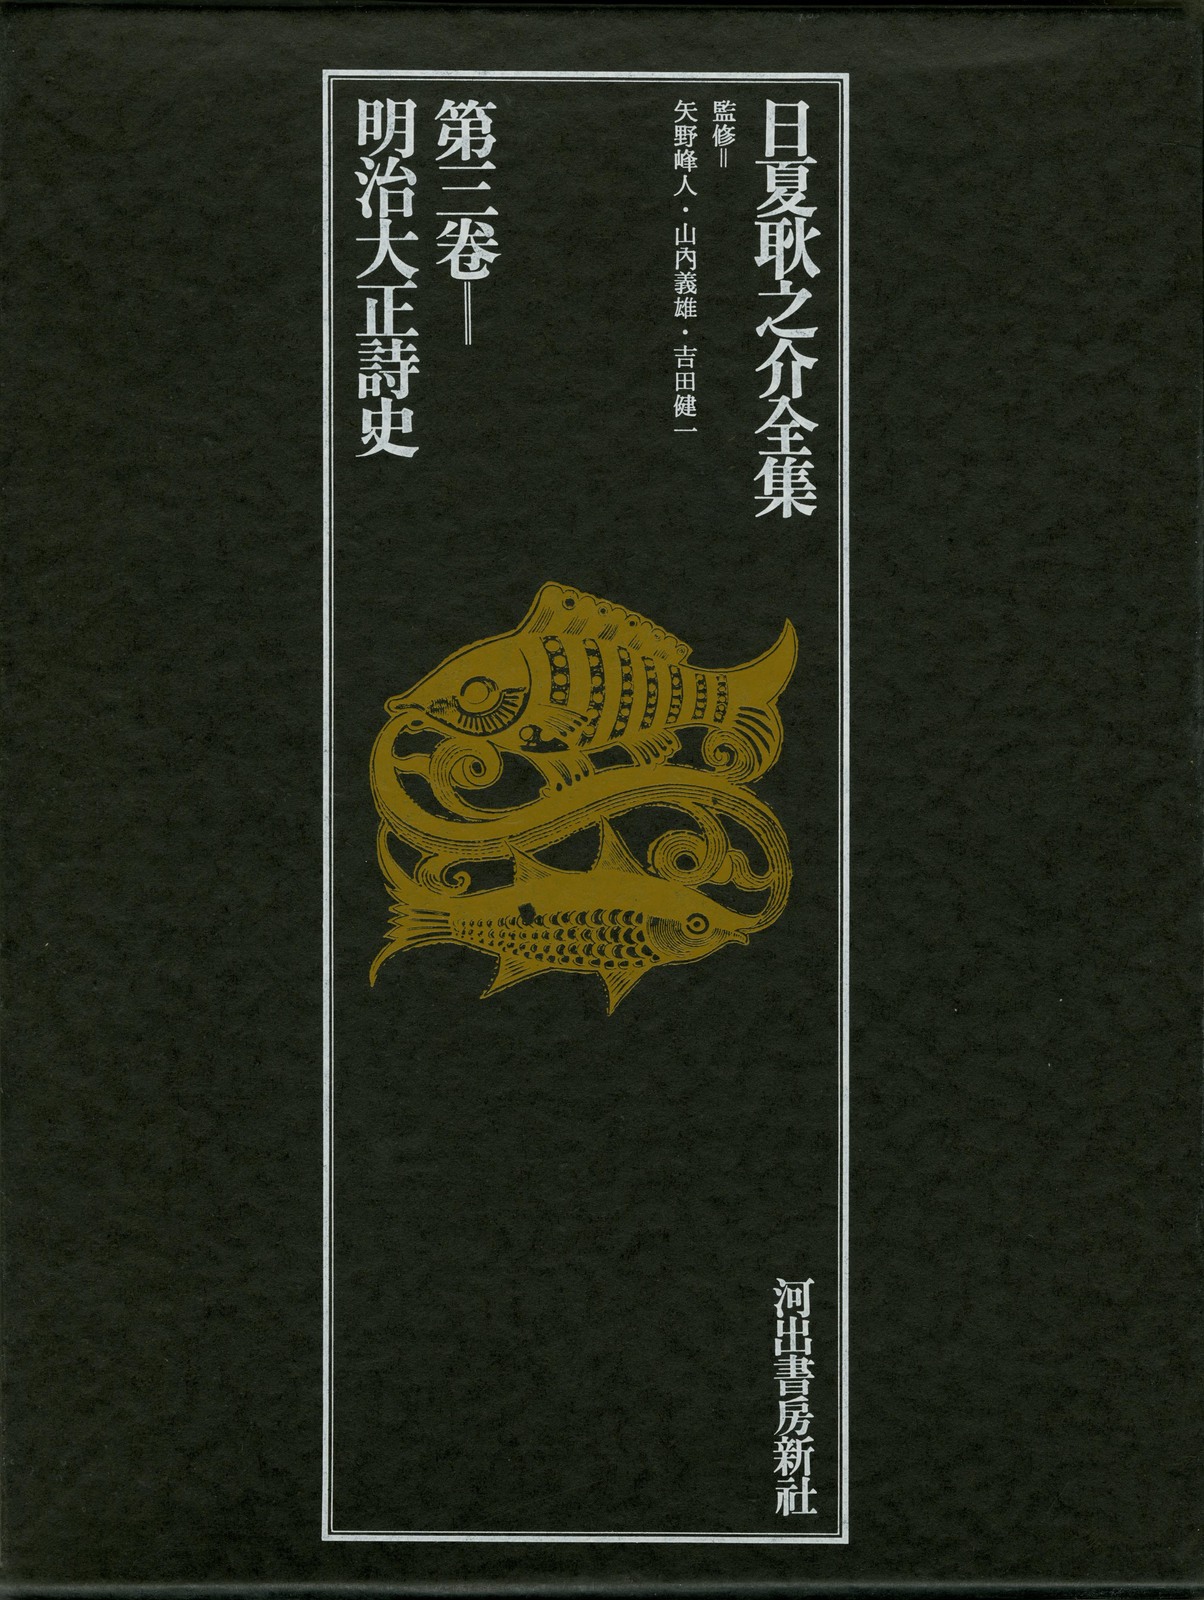 日夏耿之介全集
監修＝
矢野峰人・山內義雄・吉田健一
第三卷＝
明治大正詩史
河出書房新社